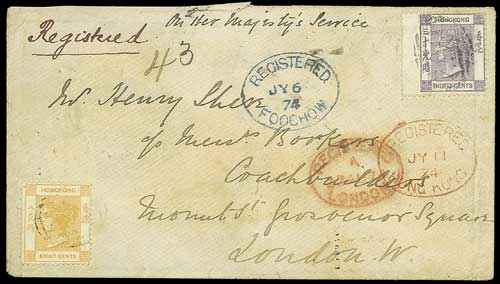 On Her Majesty's Service
Registered
43
HONGKONG
THIRTY CENTS
REGISTERED
JY 6
74
FOOCHOW
Mr. Henry Shen
c/o Messrs Bookers
Coachbuilders
Mount St. Grosvenor Square
London. W.
REGISTERED
JY 11
74
HONG KONG
REGISTERED
LONDON
HONGKONG
EIGHT CENTS